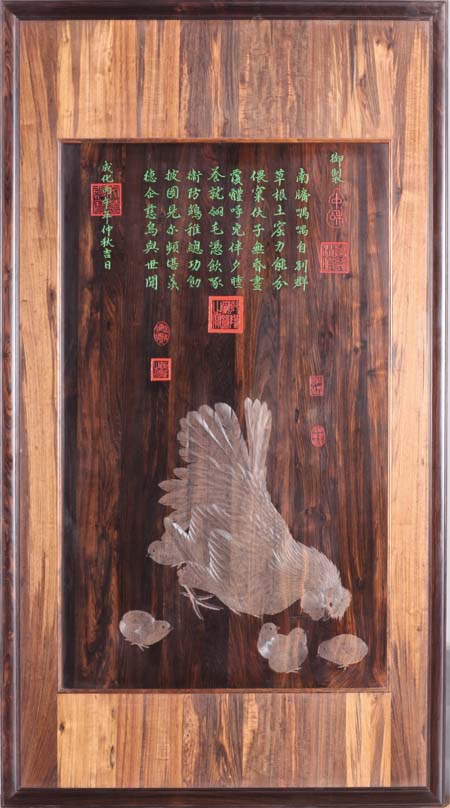 御製
南牖喁喁自别群
草根土窟力能分
偎窠伏子無昏晝
覆體呼兒伴夕曛
養就翎毛憑飲啄
衛防鷄稚總功勛
披圖見尔頻堪羨
德企慈烏與世聞
成化丙午年仲秋吉日